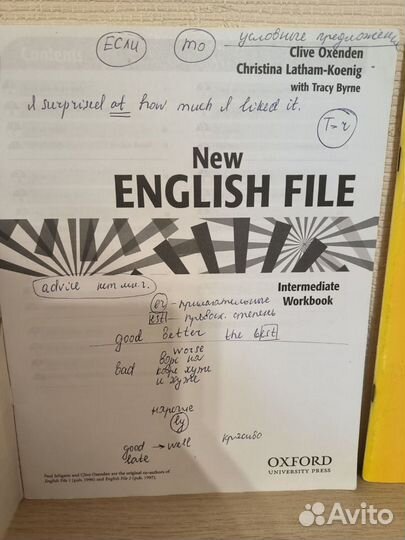 Contents
ЕСЛИ то условные предложен
Clive Oxenden
Christina Latham-Koenig
with Tracy Byrne
I surprised at how much I liked it.
New
ENGLISH FILE
advice нет мн.ч.
Intermediate
Workbook
er - прилагательные
est - превосх. степень
good better the best
worse
bad
хуже
и хуже
наречие
ly
good → well красиво
late
Paul Seligson and Clive Oxenden are the original co-authors of
English File 1 (pub. 1996) and English File 2 (pub. 1997).
OXFORD
UNIVERSITY PRESS
Avito